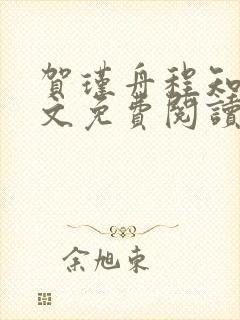 賀瑾舟程知
文免費閱讀
余旭東